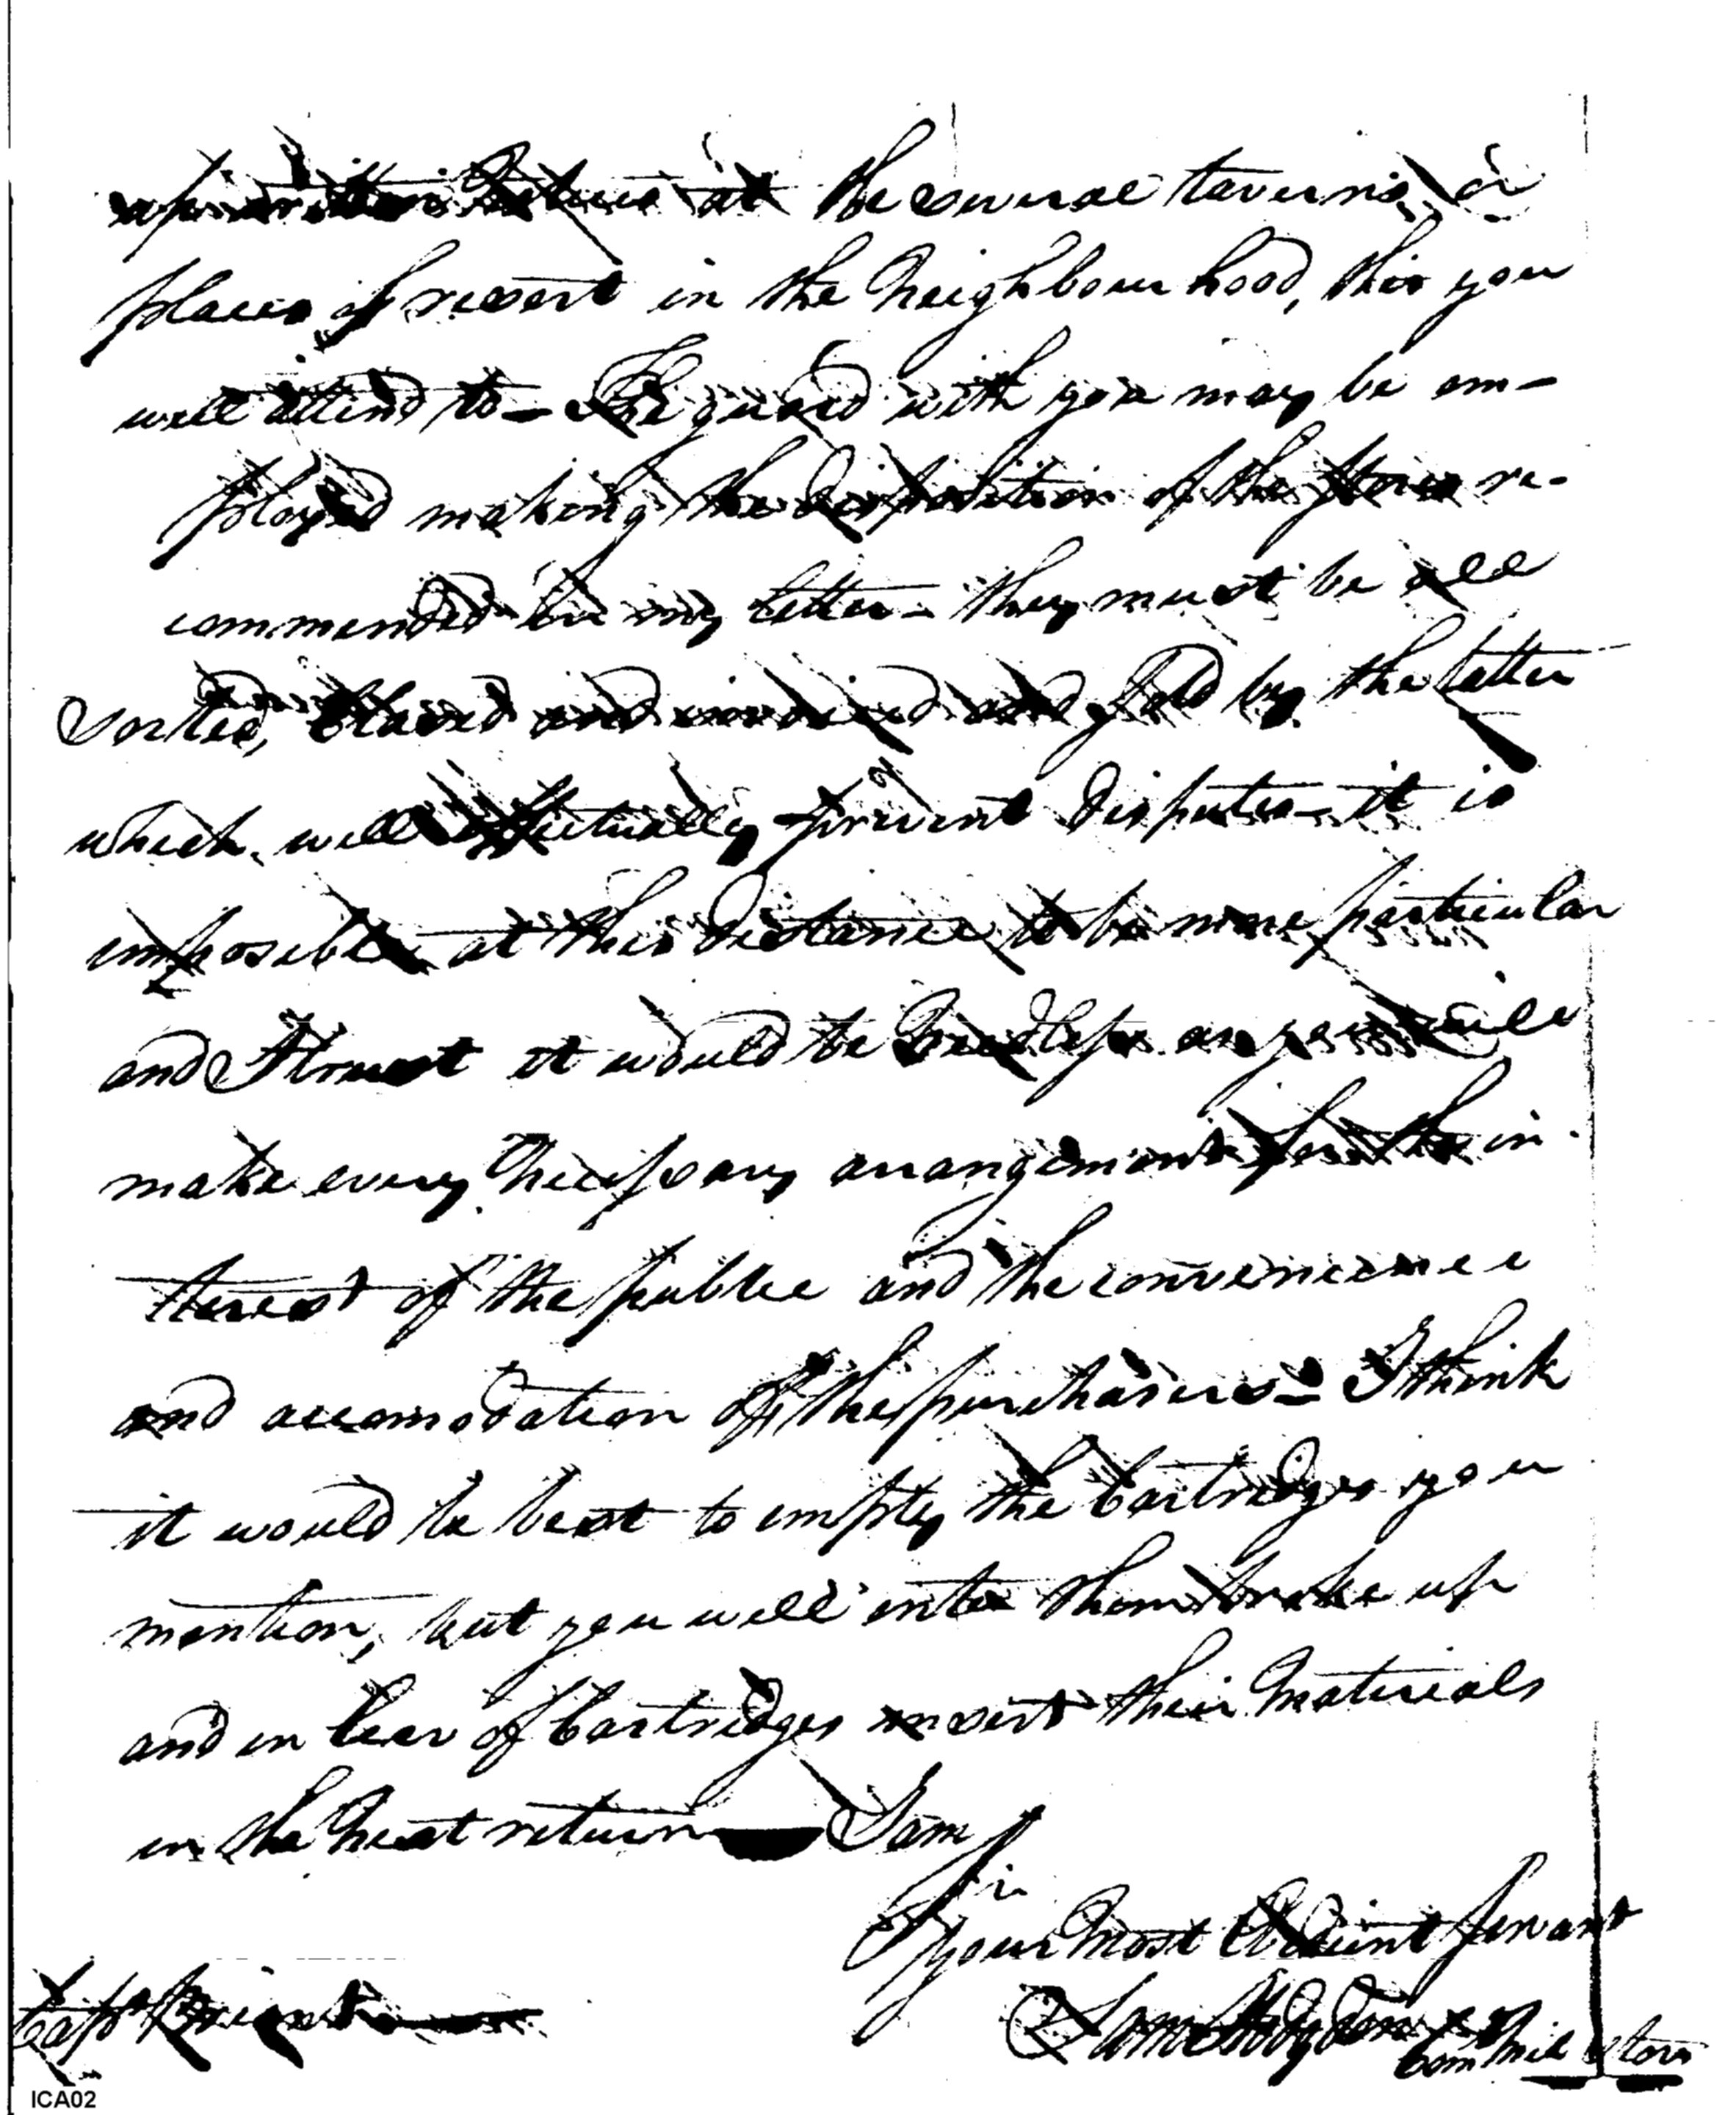 up written Notices at the several taverns or
places of resort in the Neighbourhood, this you
will attend to - The guard with you may be em-
ployed making the disposition of the stores re-
commended in my letter - they must be all
sorted, Classed and and sold by the letter
which will effectually prevent disputes - it is
imposible at this distance to be more particular
and I trust it would be Needless as you will
make every Necessary arrangement for the in-
terest of the public and the convenience
and accomodation of the purchasers - I think
it would be best to empty the Cartridges you
mention, but you will enter them broke up
and in lieu of Cartridges insert their Materials
in the Next return — I am
Sir
your Most Obedient Servant
Sam Hodgdon
Com Mil Stores
Capt
ICA02